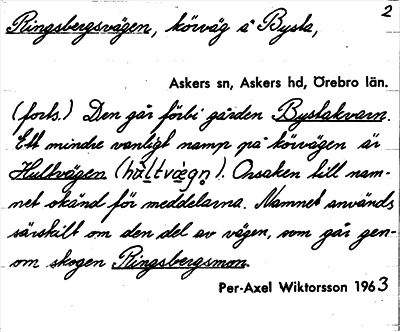 2
Ringsbergsvägen, körväg å Bysta,
Askers sn, Askers hd, Örebro län.
(forts.) Den går förbi gården Bystakvarn.
Ett mindre vanligt namp på körvägen är
Hultvägen (). Orsaken till nam-
net okänd för meddelarna. Namnet används
särskilt om den del av vägen, som går gen-
om skogen Ringsbergsmon.
Per-Axel Wiktorsson 1963